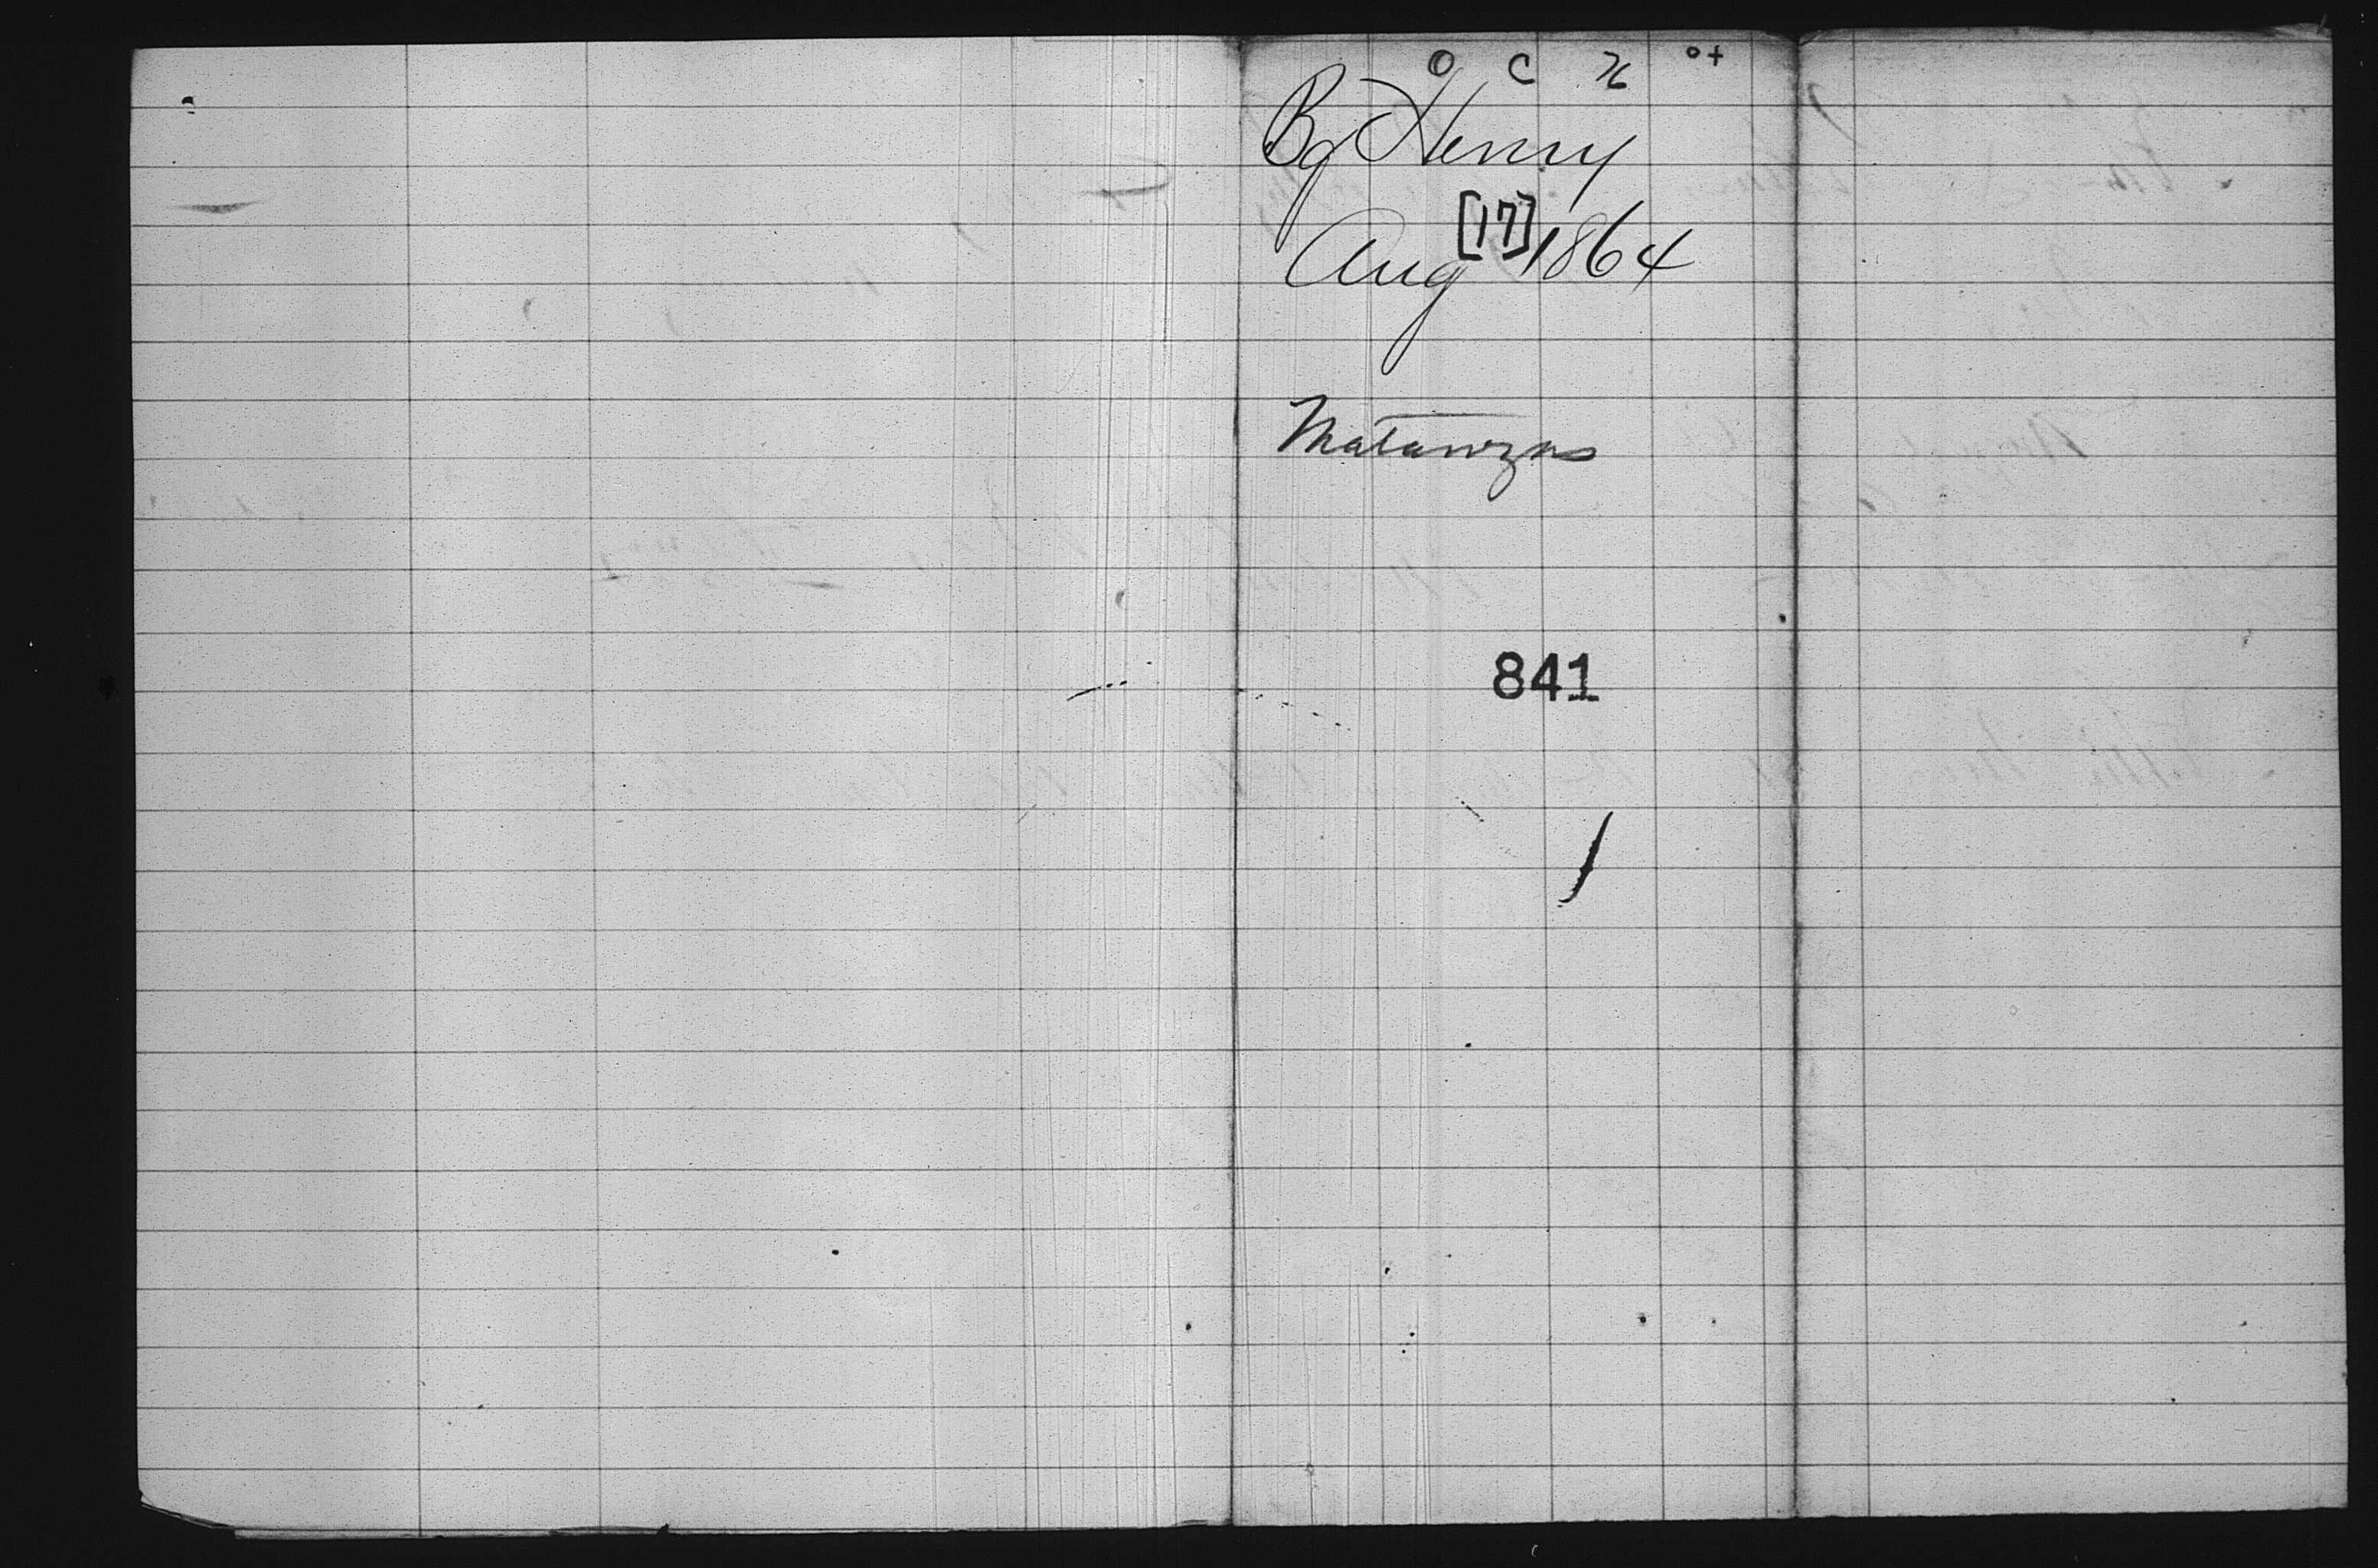 O C X o+
Bg Henry
Aug [17] 1864
Matanzas
841